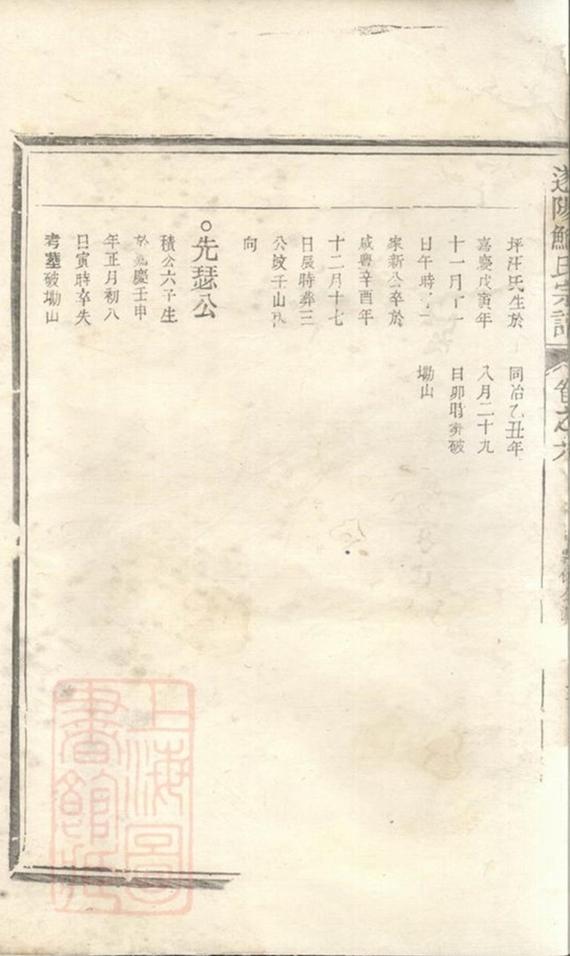 鮑氏宗譜
卷之六
坪汪氏生於
嘉慶戊寅年
十一月十一
日午時
家新公卒於
咸豐辛酉年
十二月十七
日辰時葬三
公坟子山
向
同治乙丑年
八月二十九
日卯時葬破
塌山
○先瑟公
積公六子生
於嘉慶壬申
年正月初八
日寅時卒失
考墓破塌山
上海圖
書館藏